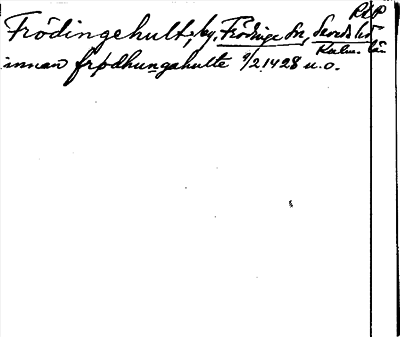 RAP
Frödingehult, by, Frödinge sn, Seveds hd
Kalm. län
innan frødhungahulte 9/2 1428 u.o.